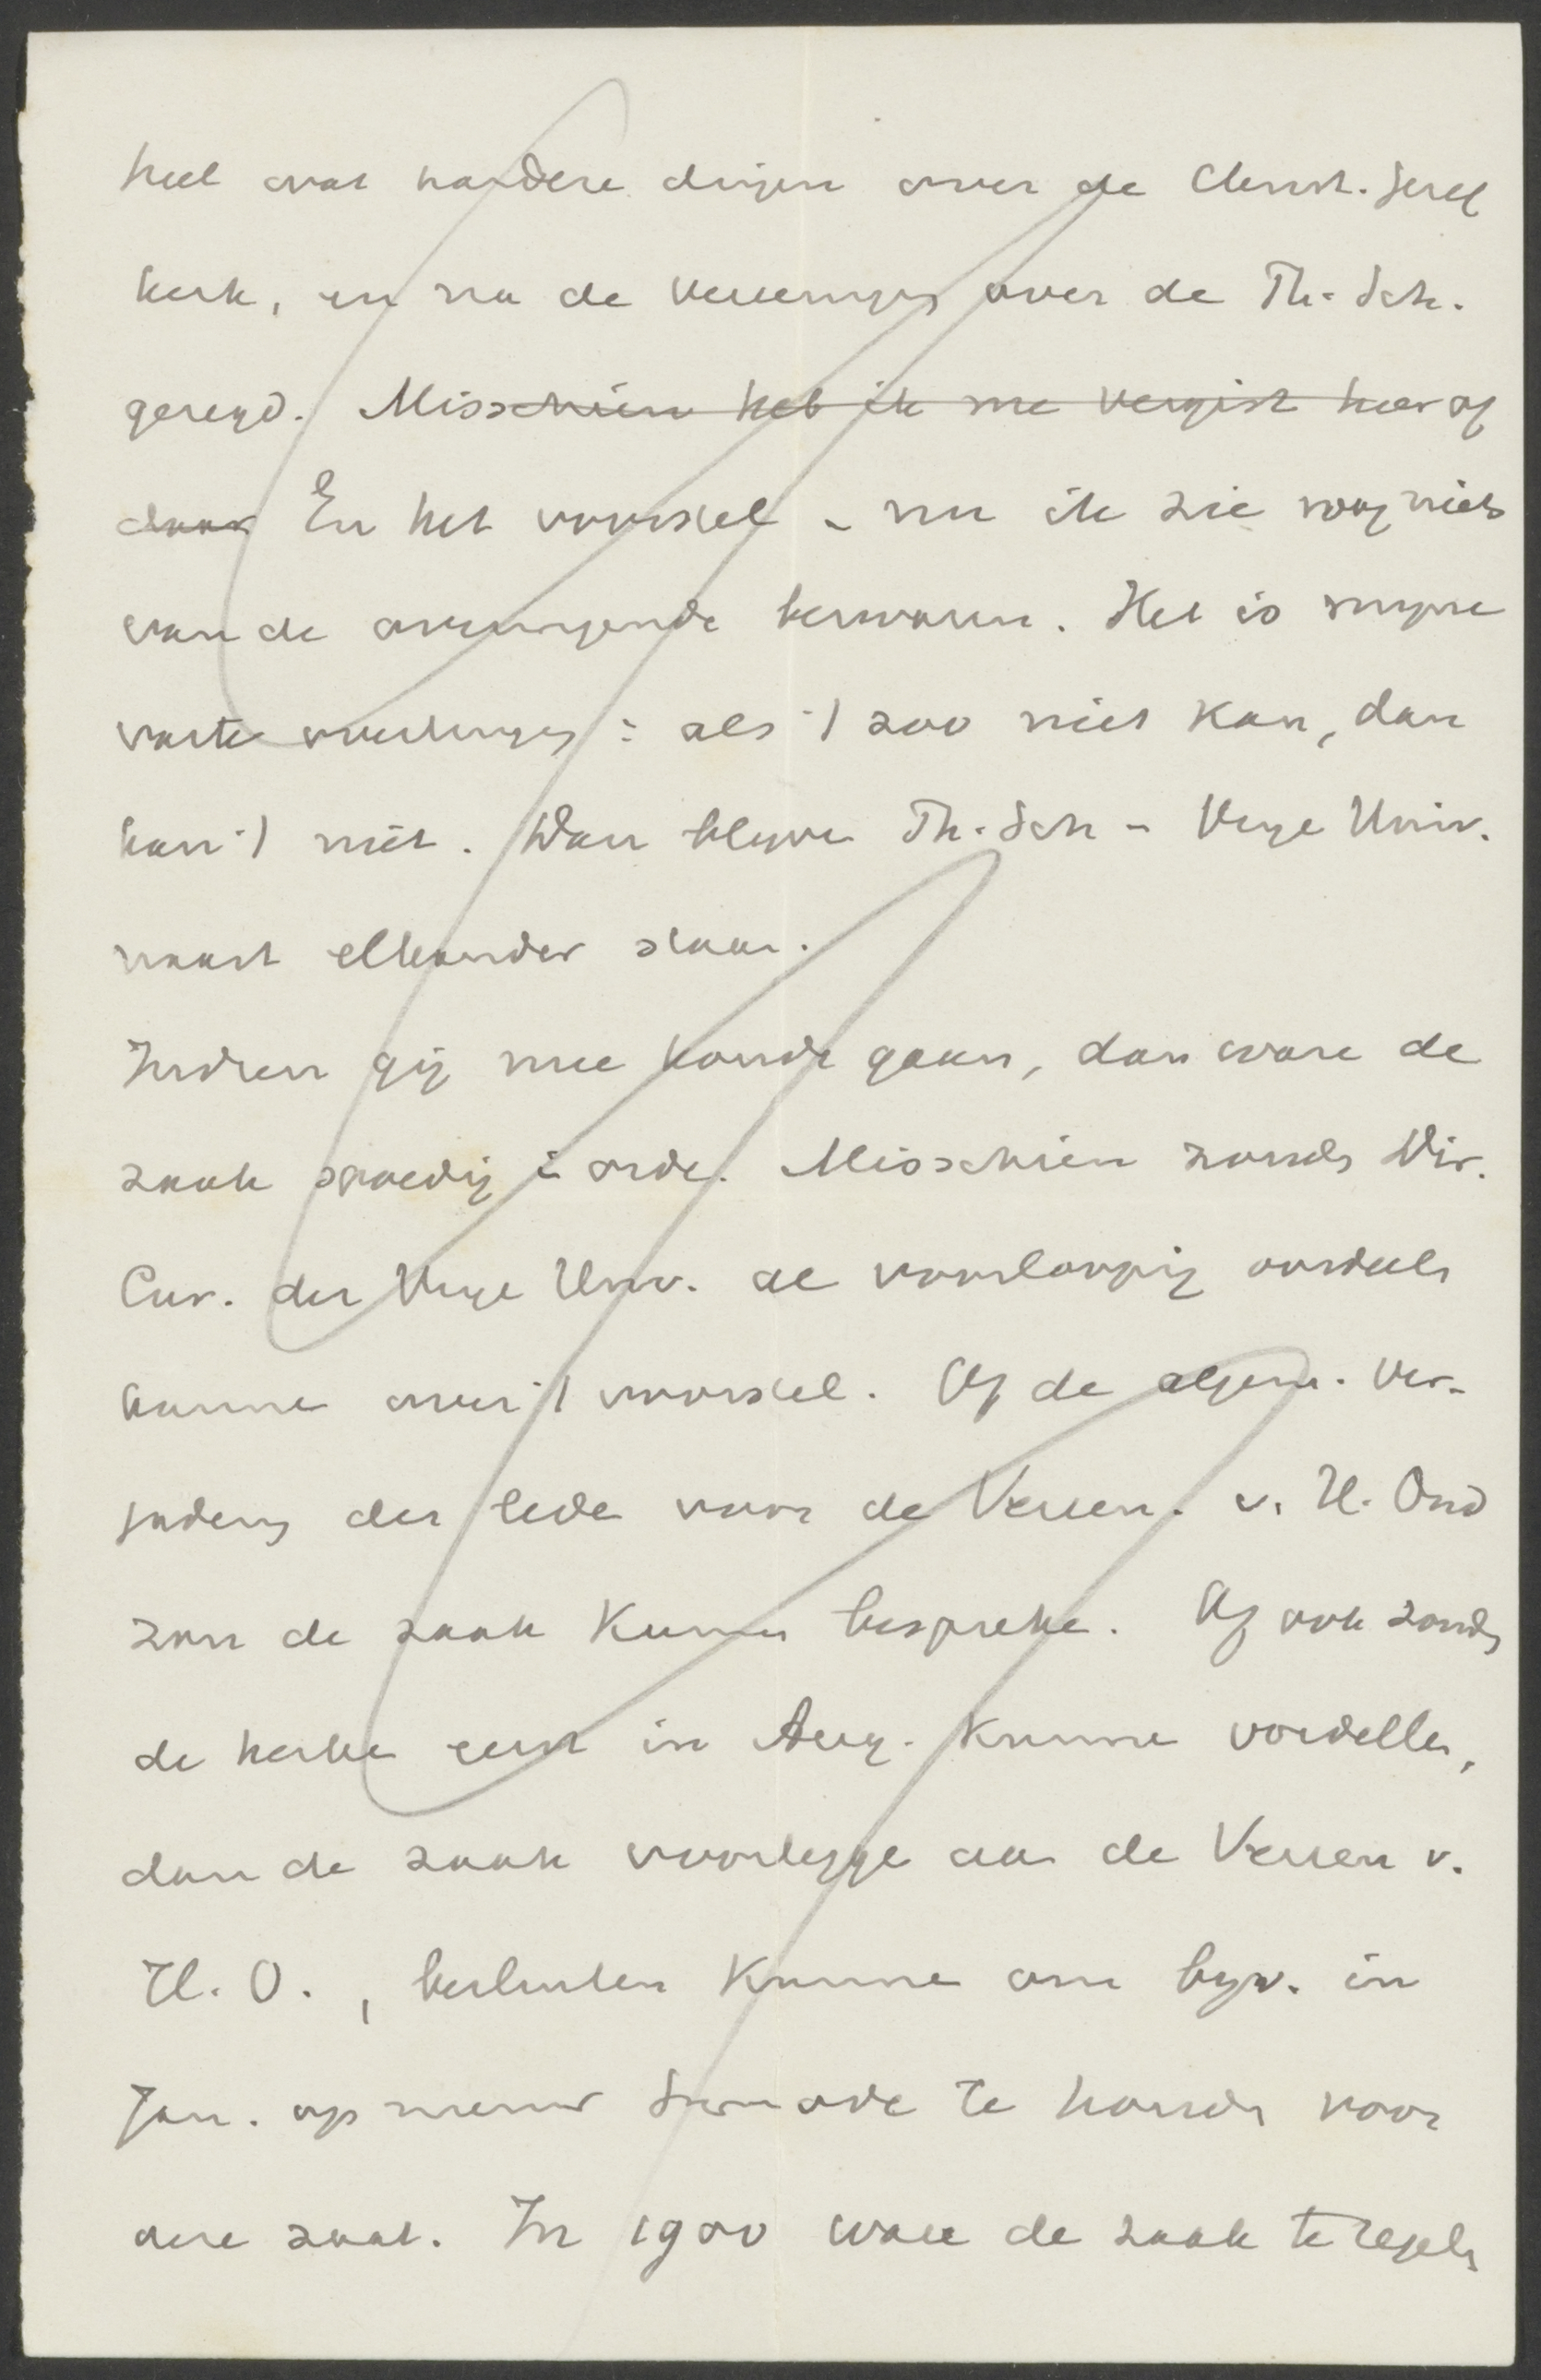 heel wat hardere dingen over de Christ. Geref
kerk, en na de vereeniging over de Th. Sch.
gezegd. Misschien heb ik me vergist hier of
daar En het voorstel – nu ik zie nog niet
van de overwegende bezwaren. Het is mijne
vaste overtuiging: als 't zoo niet kan, dan
kan 't niet. Dan blijve Th. Sch – Vrije Univ.
naast elkander staan.
Indien gij mee konde gaan, dan ware de
zaak spoedig i orde. Misschien zoude Dir.
Cur. der Vrije Univ. al voorloopig oordeele
kunne over 't voorstel. Of de algem. Ver-
gadering der lede voor de Vereen. v. H. Ond
zou de zaak kunne bespreke. Of ook zoude
de kerke eerst in Aug. kunne oordeelen,
dan de zaak voorlegge aan de Vereen v.
H. O., besluiten kunne om bijv. in
Jan. op nieuw Synode te houde voor
deze zaak. In 1900 ware de zaak te regele